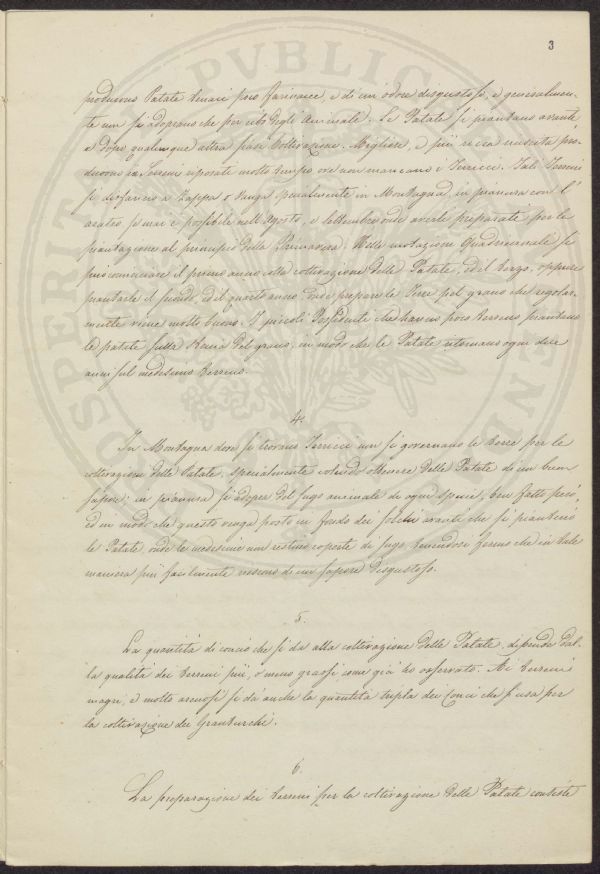 3
producono Patate tenaci poco farinacee, e di un'odore disgustoso, e generalmen-
te non si adoprano che per cibo degli Animali. Le Patate si piantano avanti
e dopo qualunque altra siasi Coltivazione. Migliore, e più ricca riuscita pro-
ducono in Terreni riposati molto tempo ove non mancano i Terricci. Tali Terreni
si disfanno a Zappa o Vanga specialmente in Montagna, in pianura con l'
aratro se mai è possibile nell'Agosto, e Settembre onde averle preparate per la
piantagione al principio della Primavera. Nelle rotazioni Quadriennali si
può cominciare il primo anno colla coltivazione delle Patate, ed il terzo, oppure
piantarle il secondo, ed il quarto anno onde preparare le Terre pel grano che regolar-
mente viene molto buono. I piccoli Possidenti che hanno poco terreno piantano
le patate sulla del grano, in modo che le Patate ritornano ogni due
anni sul medesimo terreno.
4.
In Montagna dove si trovano Terricci non si governano le terre per le
coltivazioni delle Patate, specialmente volendo ottenere delle Patate di un buon
sapore; in pianura si adopra del sugo animale di ogni specie, ben fatto però,
ed in modo che questo venga posto in fondo dei solchi avanti che si piantino
le Patate, onde le medesime non restino coperte di sugo tenendosi fermo che in tale
maniera più facilmente riescono di un sapore disgustoso.
5.
La quantità di concio che si dà alla coltivazione delle Patate, dipende dal-
la qualità dei terreni più, o meno grassi come già ho osservato. Ai terreni
magri, e molto arenosi si dà anche la quantità tripla dei Conci che si usa per
la coltivazione dei Granturchi.
6.
La preparazione dei terreni per la coltivazione delle Patate consiste
PUBLIC